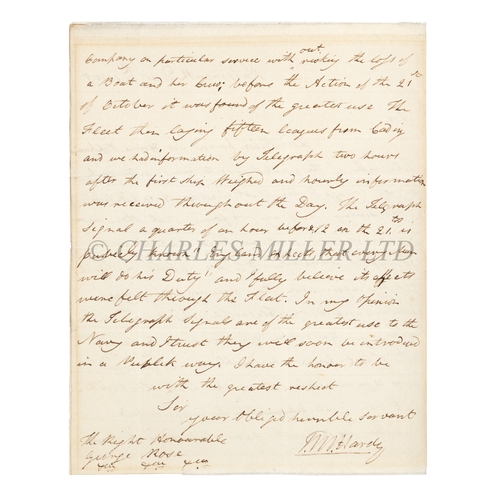 Company on particular service without risking the loss of
a Boat and her Crew; before the Action of the 21st
of October it was found of the greatest use The
Fleet then laying fifteen leagues from Cadiz
and we had information by Telegraph two hours
after the first Ship Weighed and hourly information
was received throughout the Day. The Telegraph
Signal a quarter of an hour before 12 on the 21st is
perfectly known "England expects that every Man
will do his Duty" and I fully believe its effects
were felt through the Fleet. In my opinion
the Telegraph Signals are of the greatest use to the
Navy and I trust they will soon be introduced
in a Publick way. I have the honour to be
with the greatest respect
Sir
your Obliged humble Servant
The Right Honourable
T M Hardy
George Rose
© CHARLES MILLER LTD